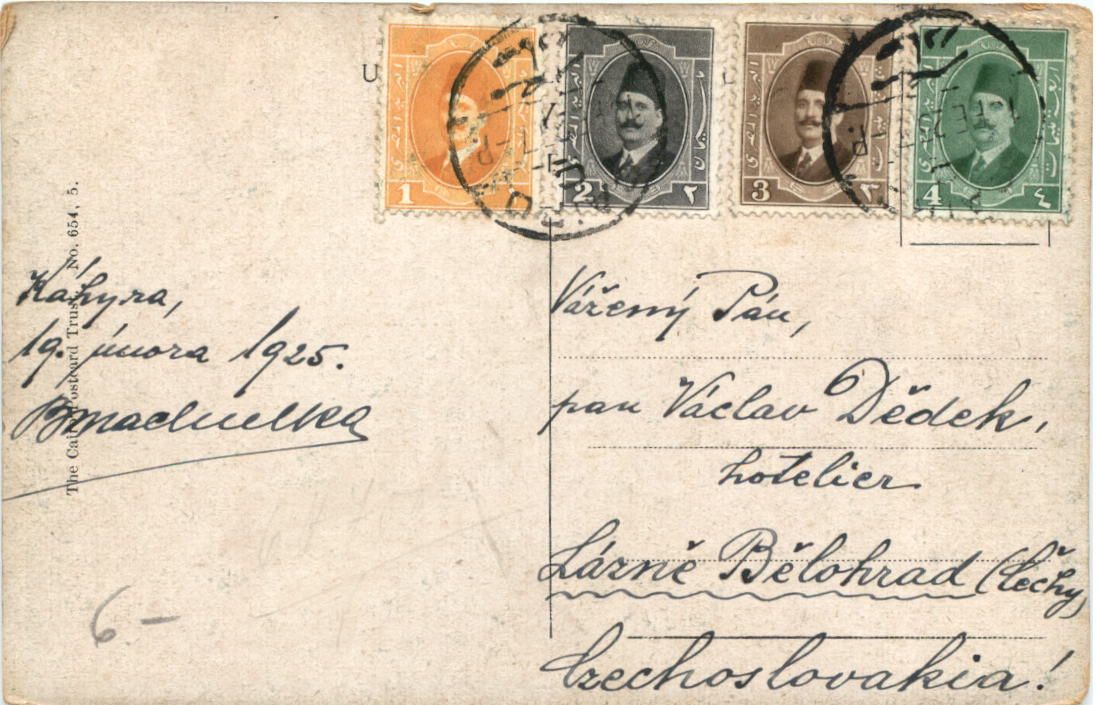 U
1
2 ٢
3 ٣
4 ٤
The Cairo Postcard Trust, No. 654, 5.
Káhyra,
19. února 1925.
BMachulka
Vážený Pán,
pan Václav Dědek,
hotelier
Lázně Bělohrad (Čechy)
Czechoslovakia!
6-